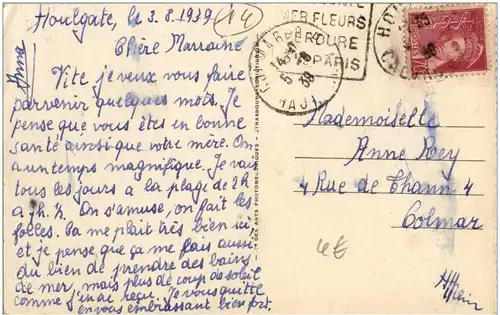 Houlgate, le 3.8.1939
(14)
Anna
Chère Marraine
Vite je veux vous faire
parvenir quelques mots. Je
pense que vous êtes en bonne
santé ainsi que votre mère. On
a un temps magnifique. Je vais
tous les jours à la plage de 2h
à 7h ½. On s'amuse, on fait les
folles. Ça me plait très bien ici,
et je pense que ça me fais aussi
du bien de prendre des bains
de mer, mais plus de coup de soleil
comme j'en ai reçu. Je vous quitte
en vous embrassant bien fort.
MER FLEURS
VERDURE
PARIS
Mademoiselle
Anne Rey
4 Rue de Thann 4
Colmar
4€
Ht Rhin